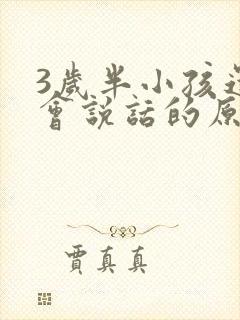 3歲半小孩
會說話的原
賈真真